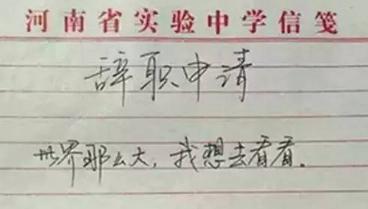 河南省实验中学信笺
辞职申请
世界那么大，我想去看看.